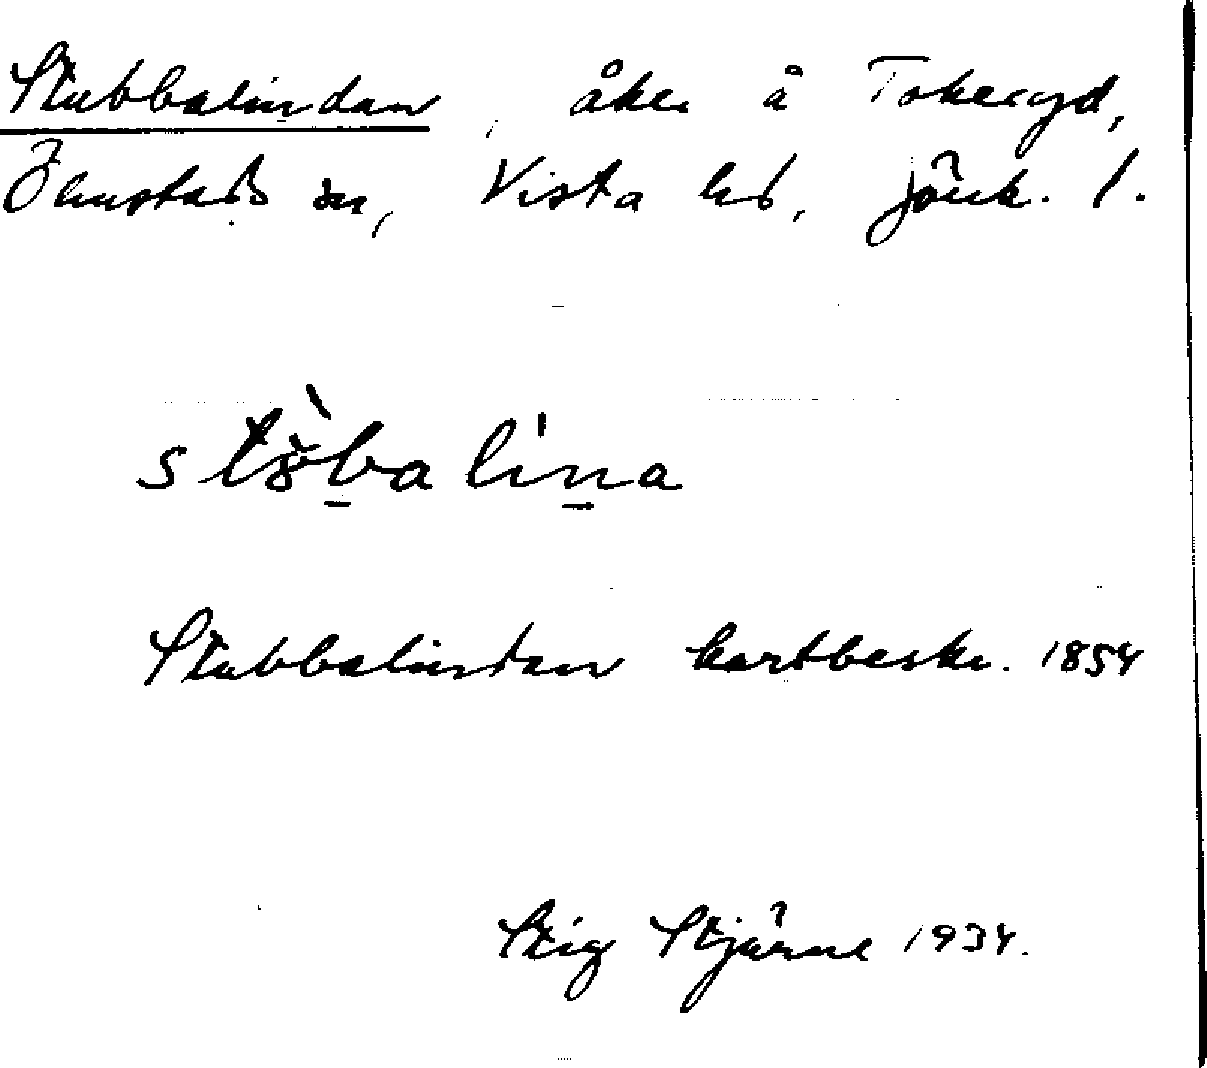 Stubbalindan, åker å Tokeryd,
Ölmstads sn, Vista hd, Jönk. l.
stòbalina
Stubbalindan kartbeskr. 1854
Stig Stjärne 1934.